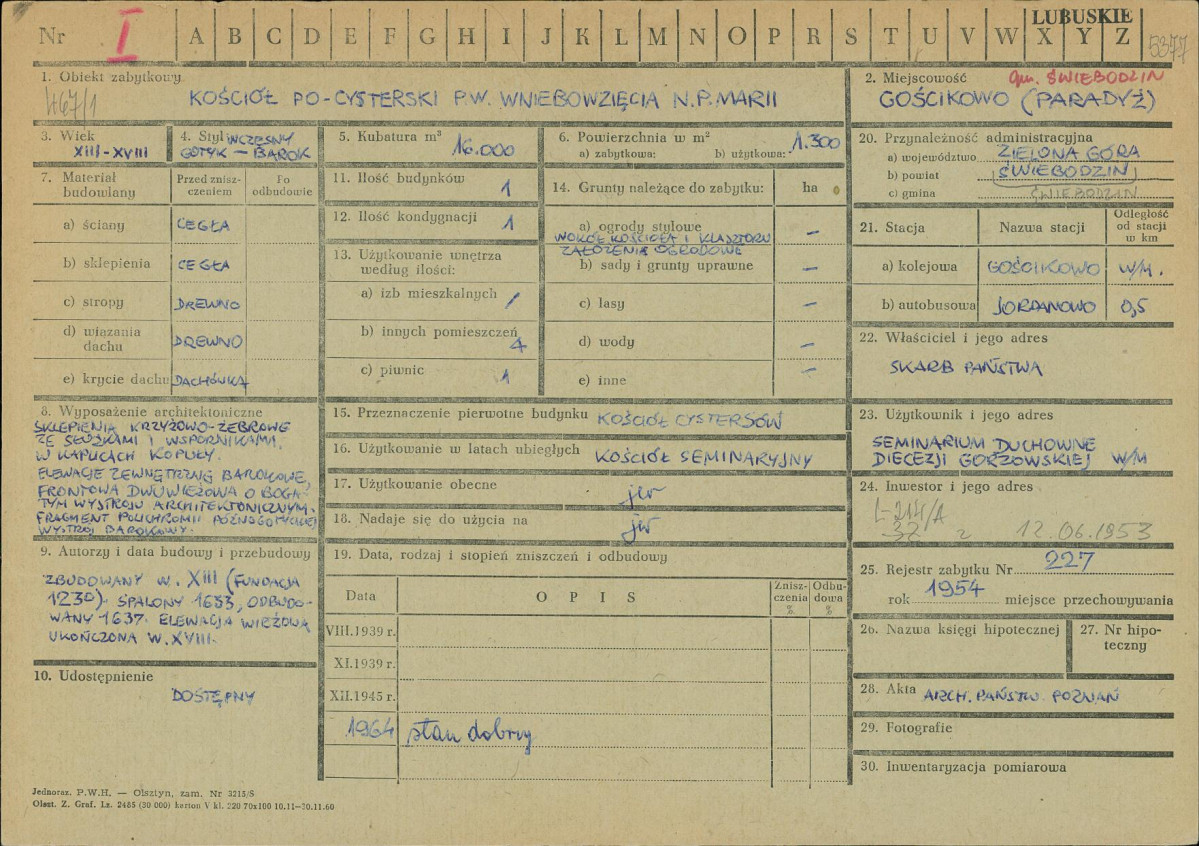 LUBUSKIE
Nr I A B C D E F G H I J K L M N O P R S T U V W X Y Z
5377
1. Obiekt zabytkowy
467/1
KOŚCIÓŁ PO-CYSTERSKI P.W. WNIEBOWZIĘCIA N.P. MARII
2. Miejscowość gm. ŚWIEBODZIN
GOŚCIKOWO (PARADYŻ)
3. Wiek
XIII-XVIII
4. Styl WCZESNY
GOTYK – BAROK
5. Kubatura m³
16.000
6. Powierzchnia w m²
a) zabytkowa: b) użytkowa: 1.300
7. Materiał
budowlany
Przed znisz-
czeniem
Po
odbudowie
a) ściany CEGŁA
b) sklepienia CEGŁA
c) stropy DREWNO
d) wiązania
dachu DREWNO
e) krycie dachu DACHÓWKA
8. Wyposażenie architektoniczne
SKLEPIENIA KRZYŻOWO-ŻEBROWE
ZE SŁUŻKAMI I WSPORNIKAMI.
W KAPLICACH KOPUŁY.
ELEWACJE ZEWNĘTRZNE BAROKOWE,
FRONTOWA DWUWIEŻOWA O BOGA-
TYM WYSTROJU ARCHITEKTONICZNYM.
FRAGMENT POLICHROMII PÓŹNOGOTYCKIEJ
WYSTRÓJ BAROKOWY.
9. Autorzy i data budowy i przebudowy
ZBUDOWANY W. XIII (FUNDACJA
1230). SPALONY 1633, ODBUDO-
WANY 1637. ELEWACJA WIEŻOWA
UKOŃCZONA W. XVIII.
10. Udostępnienie
DOSTĘPNY
11. Ilość budynków 1
12. Ilość kondygnacji 1
13. Użytkowanie wnętrza
według ilości:
a) izb mieszkalnych /
b) innych pomieszczeń 4
c) piwnic 1
14. Grunty należące do zabytku: ha
a) ogrody stylowe –
WOKÓŁ KOŚCIOŁA I KLASZTORU
ZAŁOŻENIA OGRODOWE
b) sady i grunty uprawne –
c) lasy –
d) wody –
e) inne –
15. Przeznaczenie pierwotne budynku KOŚCIÓŁ CYSTERSÓW
16. Użytkowanie w latach ubiegłych KOŚCIÓŁ SEMINARYJNY
17. Użytkowanie obecne jw
18. Nadaje się do użycia na jw
19. Data, rodzaj i stopień zniszczeń i odbudowy
Data OPIS Znisz-
czenia
% Odbu-
dowa
%
VIII.1939 r.
XI.1939 r.
XII.1945 r.
1964 stan dobry
20. Przynależność administracyjna
a) województwo ZIELONA GÓRA
b) powiat ŚWIEBODZIN
c) gmina ŚWIEBODZIN
21. Stacja Nazwa stacji Odległość
od stacji
w km
a) kolejowa GOŚCIKOWO W/M.
b) autobusowa JORDANOWO 0,5
22. Właściciel i jego adres
SKARB PAŃSTWA
23. Użytkownik i jego adres
SEMINARIUM DUCHOWNE
DIECEZJI GORZOWSKIEJ W/M
24. Inwestor i jego adres
L-214/A
z 12.06.1953
25. Rejestr zabytku Nr 227
rok 1954 miejsce przechowywania
26. Nazwa księgi hipotecznej
27. Nr hipo-
teczny
28. Akta ARCH. PAŃSTW. POZNAŃ
29. Fotografie
30. Inwentaryzacja pomiarowa
Jednoraz. P.W.H. — Olsztyn, zam. Nr 3215/S
Olszt. Z. Graf. Lz. 2485 (30 000) karton V kl. 220 70x100 10.11—30.11.60